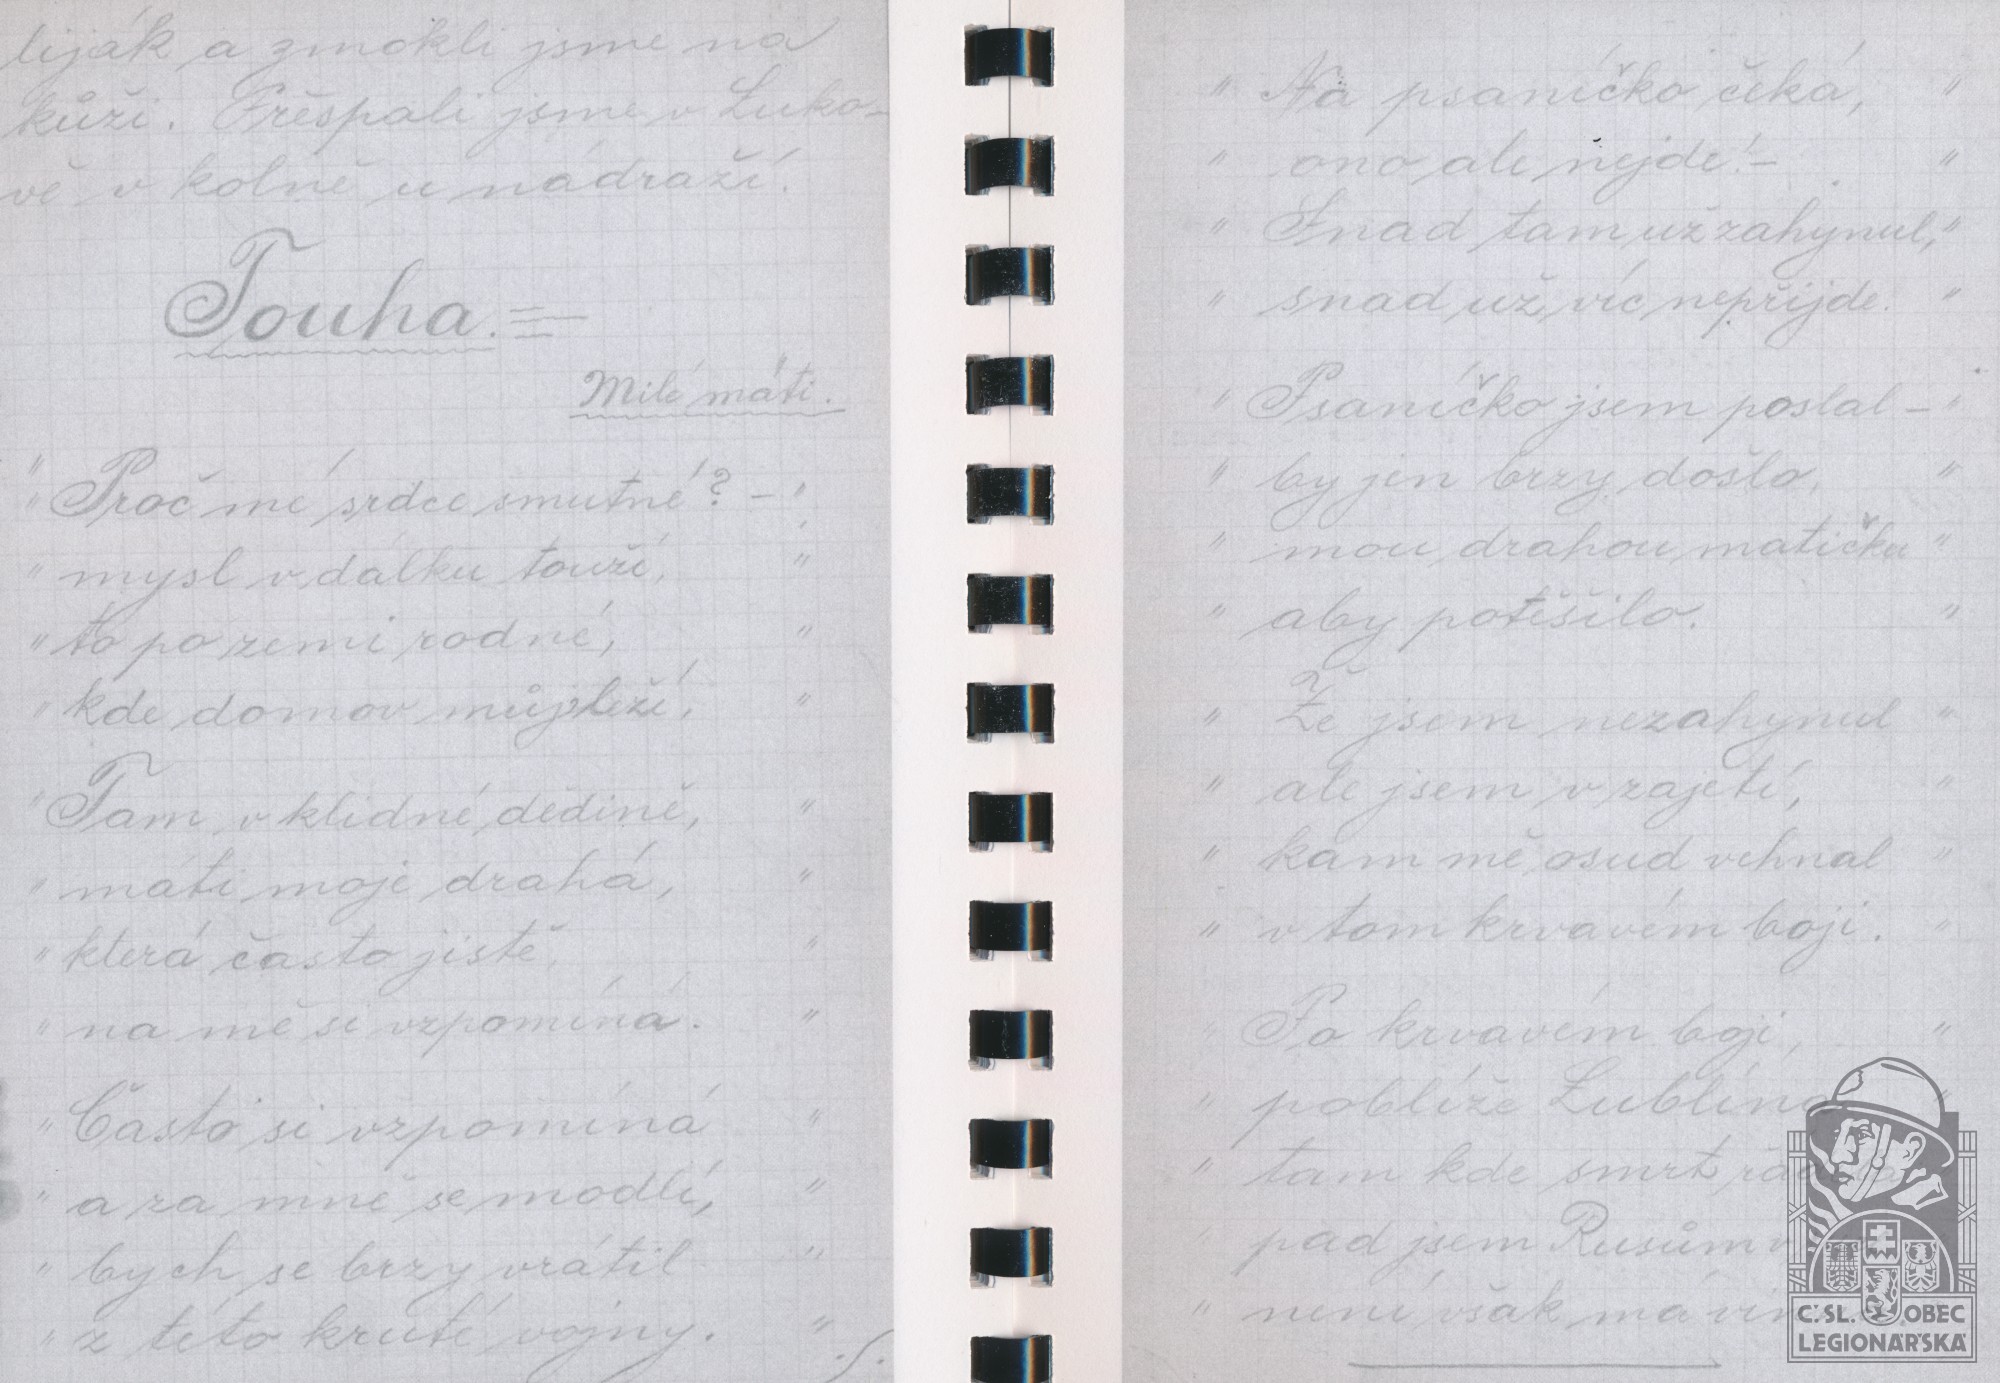 liják a zmokli jsme na
kůži. Přespali jsme v Luko-
vě v kolně u nádraží.
Touha.
Milé máti.
" Proč mé srdce smutné? – "
" mysl v dálku touží, "
" to po zemi rodné, "
" kde domov můj leží, "
" Tam v klidné dědině, "
" máti moje drahá, "
" která často jistě "
" na mě si vzpomíná. "
" Často si vzpomíná "
" a za mně se modlí, "
" bych se brzy vrátil "
" z této kruté vojny. "
" Na psaníčko čeká, "
" ono ale nejde! – "
" Snad tam už zahynul, "
" snad už víc nepřijde. "
" Psaníčko jsem poslal – "
" by jen brzy došlo, "
" mou drahou matičku "
" aby potěšilo. "
" Že jsem nezahynul "
" ale jsem v zajetí, "
" kam mě osud vehnal "
" v tom krvavém boji. "
" Po krvavém boji, "
" poblíže Lublína
" tam kde smrt
" pad jsem Rusům v
" není však má
Č.SL. OBEC
LEGIONÁŘSKÁ